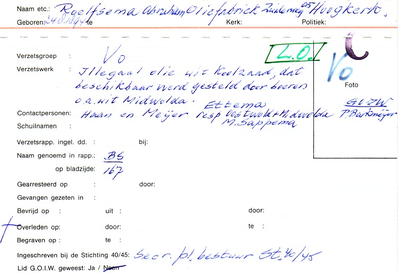 Naam etc.: Roelfsema Abraham Oliefabriek Zuiderweg Hoogkerk.
Geboren: te Kerk: Politiek:
Verzetsgroep : Vo
L.O.
Vo
Verzetswerk : Illegaal olie uit Koolzaad, dat
beschikbaar werd gesteld door boeren
o.a. uit Midwolda.
Foto
Ettema
G.O.I.W.
Contactpersonen: Haan en Meijer resp Oostwold + Midwolda P Barkmeijer
Schuilnamen : M. Sappema
Verzetsrapp. ingel. dd. : bij:
Naam genoemd in rapp.: BS
op bladzijde: 167
Gearresteerd op : door:
Gevangen gezeten in :
Bevrijd op : uit : door:
Overleden op: door: te :
Begraven op : te :
Ingeschreven bij de Stichting 40/45: Secr. pl. bestuur St. 40/45
Lid G.O.I.W. geweest: Ja / Neen